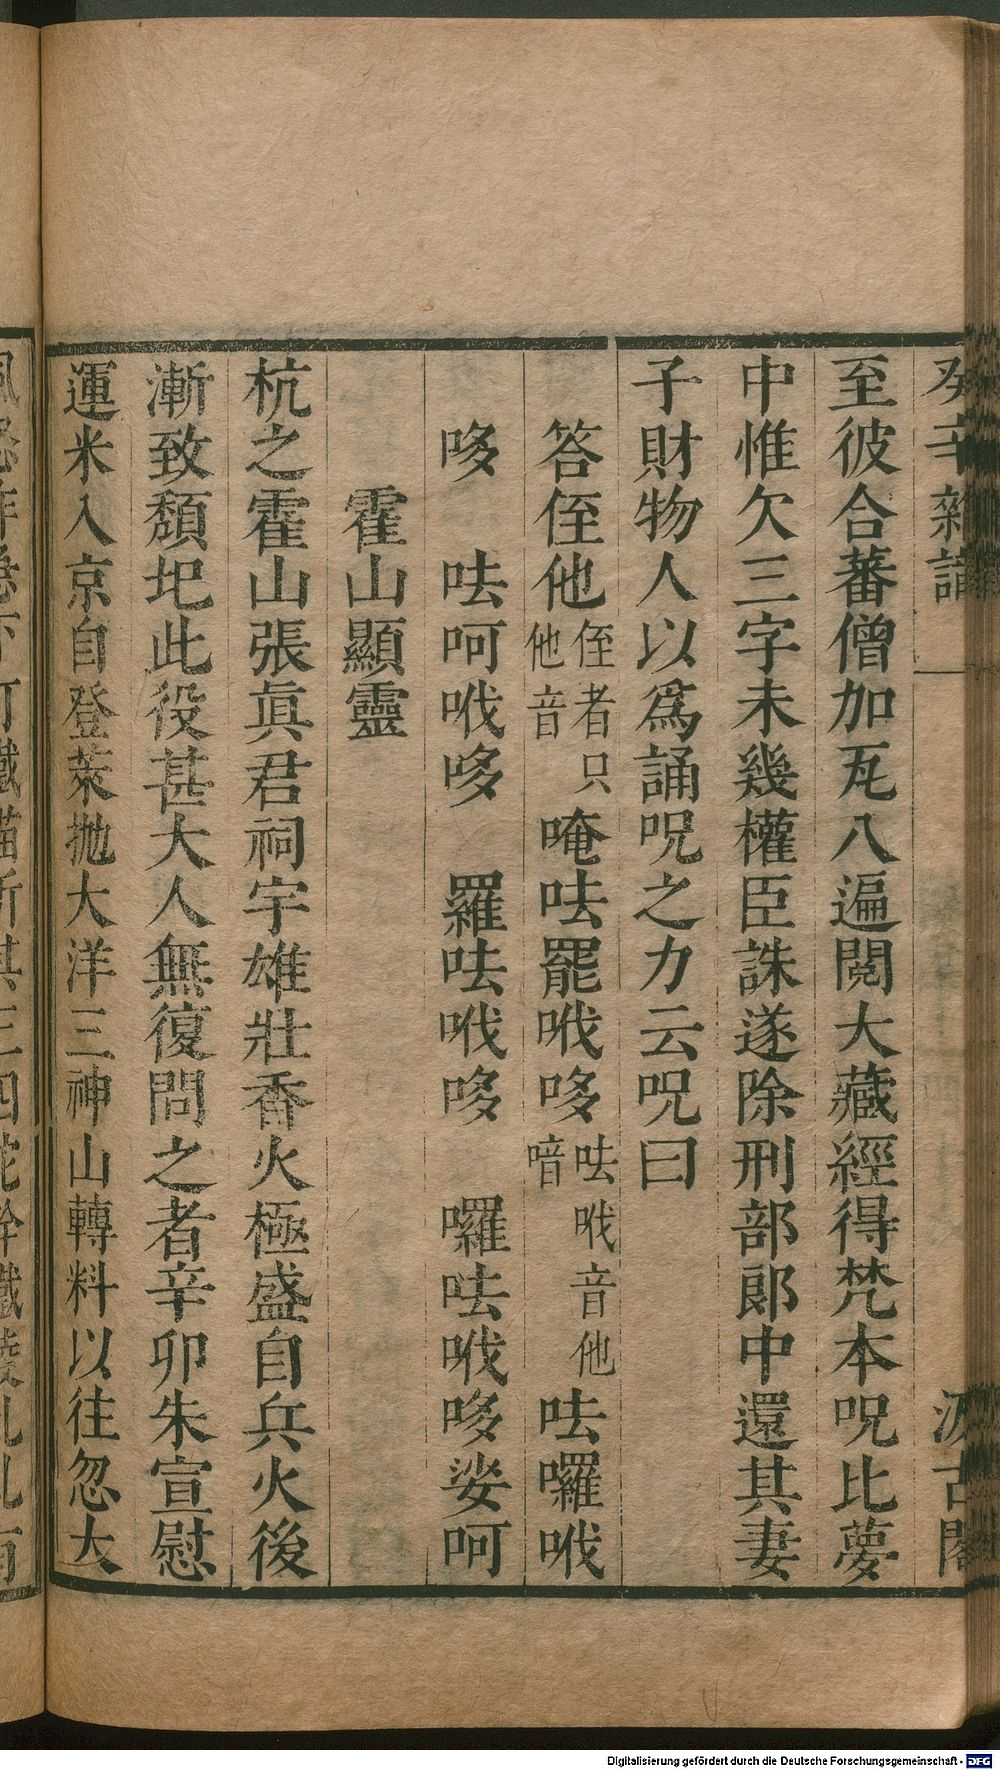 癸辛雜識
汲古閣
至彼合蕃僧加瓦八遍閱大藏經得梵本呪比夢
中惟欠三字未幾權臣誅遂除刑部郎中還其妻
子財物人以爲誦呪之力云呪曰
答侄他侄者只他音唵呿罷哦哆呿哦音他喑呿囉哦
哆 呿呵哦哆 羅呿哦哆 囉呿哦哆娑呵
霍山顯靈
杭之霍山張眞君祠宇雄壯香火極盛自兵火後
漸致頽圯此役甚大人無復問之者辛卯朱宣慰
運米入京自登萊拋大洋三神山轉料以往忽大
Digitalisierung gefördert durch die Deutsche Forschungsgemeinschaft - DFG